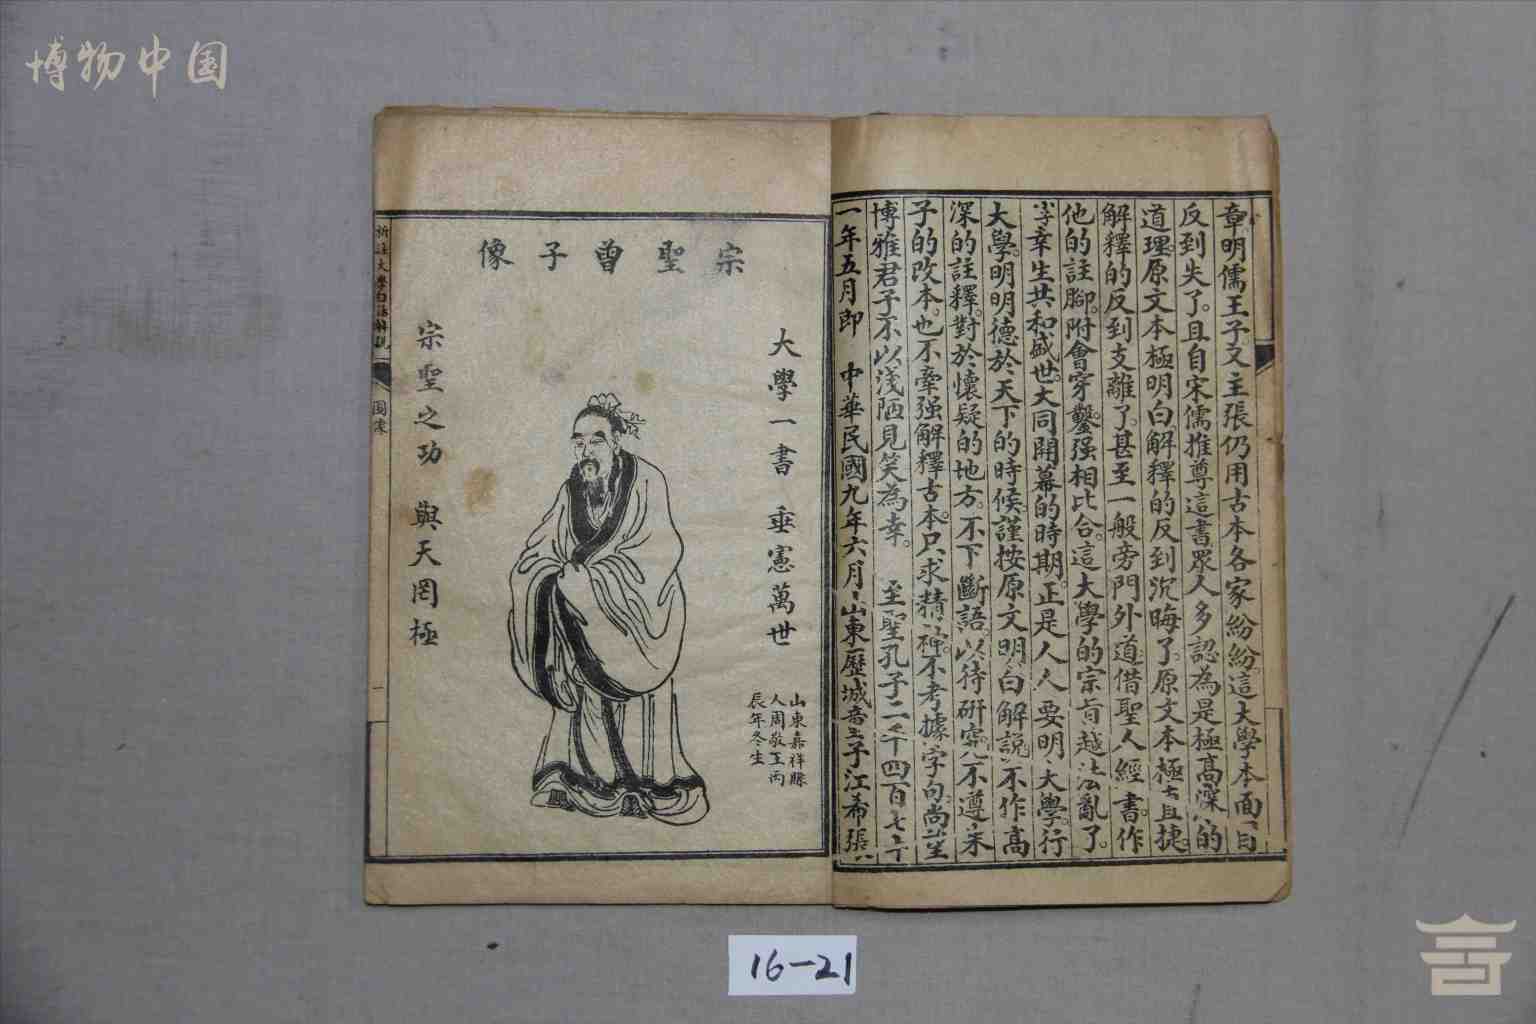 博物中国
章明儒王子又主張仍用古本各家紛紛。這大學本面目
反到失了。且自宋儒推尊這書眾人多認為是極高深的
道理原文本極明白解釋的反到沉晦了。原文本極直捷。
解釋的反到支離了。甚至一般旁門外道借聖人經書。作
他的註腳。附會穿鑿。强相比合。這大學的宗旨越法亂了。
幸生共和盛世。大同開幕的時期。正是人人要明大學。行
大學。明明德於天下的時候。謹按原文明白解說。不作高
深的註釋。對於懷疑的地方。不下斷語。以待研究。不遵朱
子的改本。也不牽强解釋古本。只求精神。不考據字句。尚望
博雅君子不以淺陋見笑為幸。 至聖孔子二千四百七十
一年五月即 中華民國九年六月山東歷城童子江希張
宗聖曾子像
大學一書 垂憲萬世
山東嘉祥縣
人周敬王丙
辰年冬生
宗聖之功 與天罔極
新註大學白話解說
圖像
一
16-21